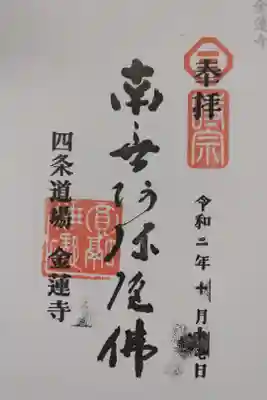 奉拝
令和二年十月十 日
南無阿弥陀佛
四条道場 金蓮寺